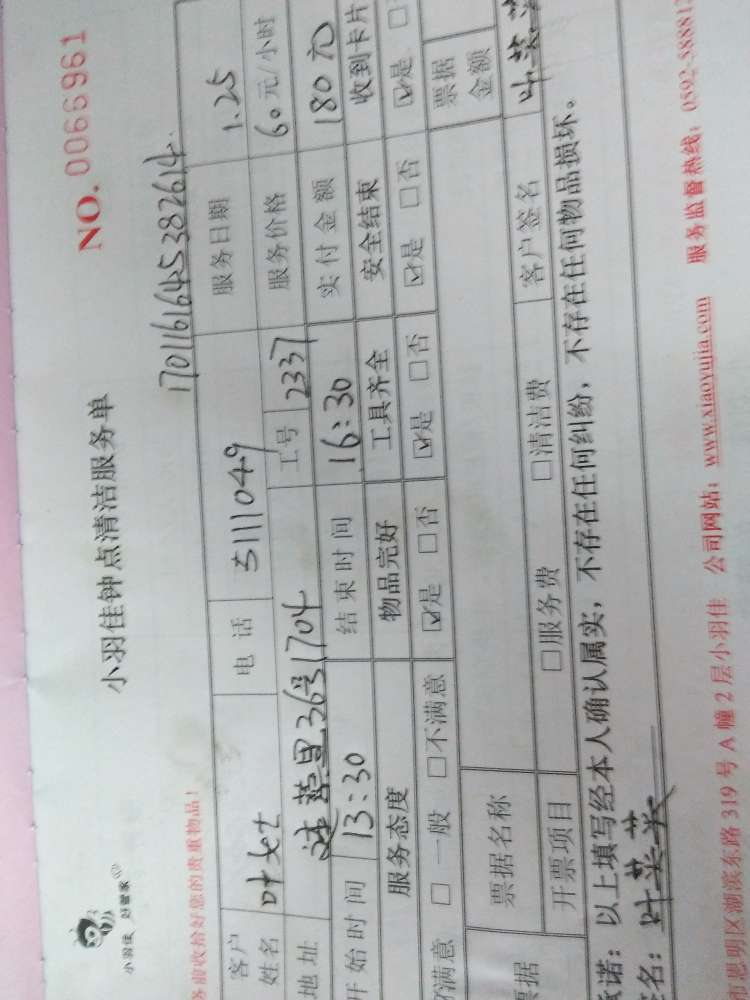 小羽佳 好管家
小羽佳钟点清洁服务单
NO. 0066961
务前收拾好您的贵重物品!
1701161645382614
客户姓名 叶女士 电话 5111049 服务日期 1.25
地址 莲菜里36号1704 工号 2337 服务价格 60元/小时
开始时间 13:30 结束时间 16:30 实付金额 180元
服务态度 物品完好 工具齐全 安全结束 收到卡片
满意 □ 一般 □不满意 ☑是 □否 ☑是 □否 ☑是 □否 ☑是 □
票据 票据名称 票据金额
开票项目 □服务费 □清洁费 客户签名 叶菜
诺: 以上填写经本人确认属实, 不存在任何纠纷, 不存在任何物品损坏。
名: 叶菜英
市思明区湖滨东路 319 号 A 幢 2 层小羽佳 公司网站: www.xiaoyujia.com 服务监督热线: 0592-588812